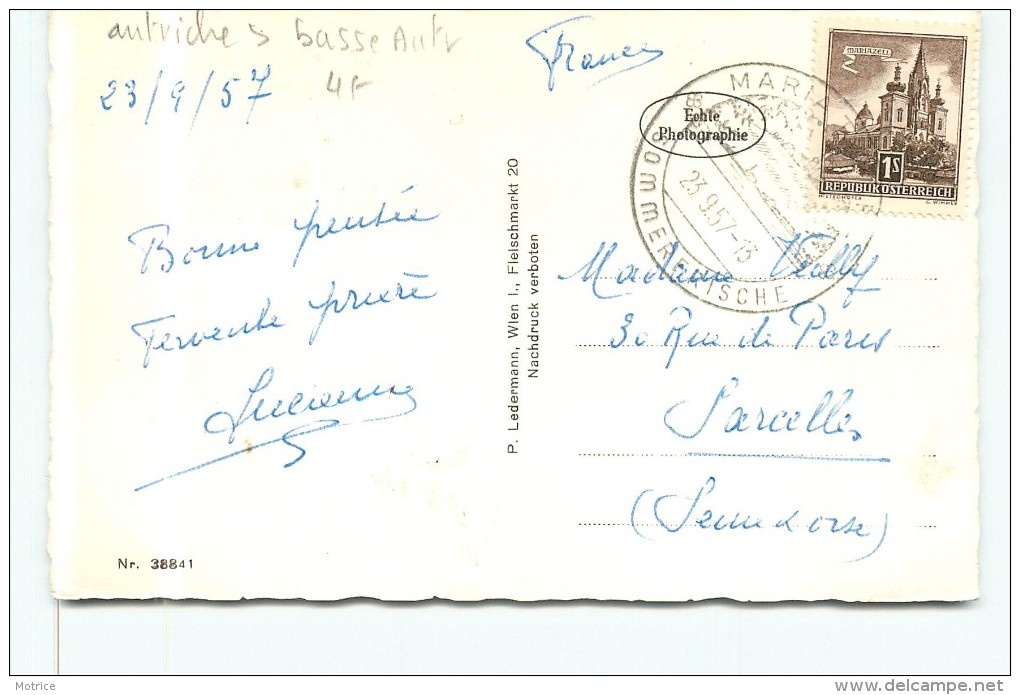 autriche > basse Autr
4F
23/9/57
France
Echte
Photographie
MARIAZELL
REPUBLIK ÖSTERREICH
1S
MARIA
23.9.57-13
SOMMERFRISCHE
Bonne pensée
Fervente prière
Lucienne
P. Ledermann, Wien I., Fleischmarkt 20
Nachdruck verboten
Madame
30 Rue de Paris
Sarcelles
(Seine & Oise)
Nr. 38841
Motrice
www.delcampe.net